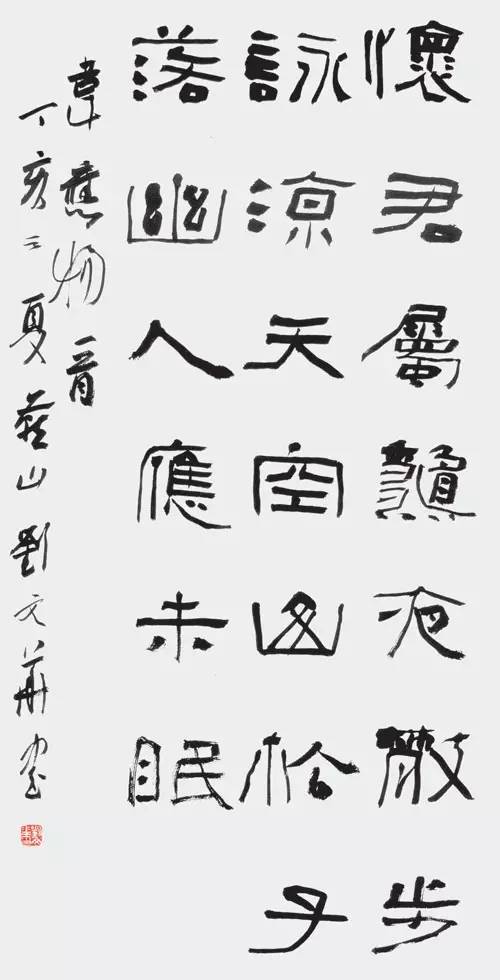 懷君屬龝夜散步
詠涼天空山松子
落幽人應未眠
韋應物一首
丁亥之夏燕山劉文華書